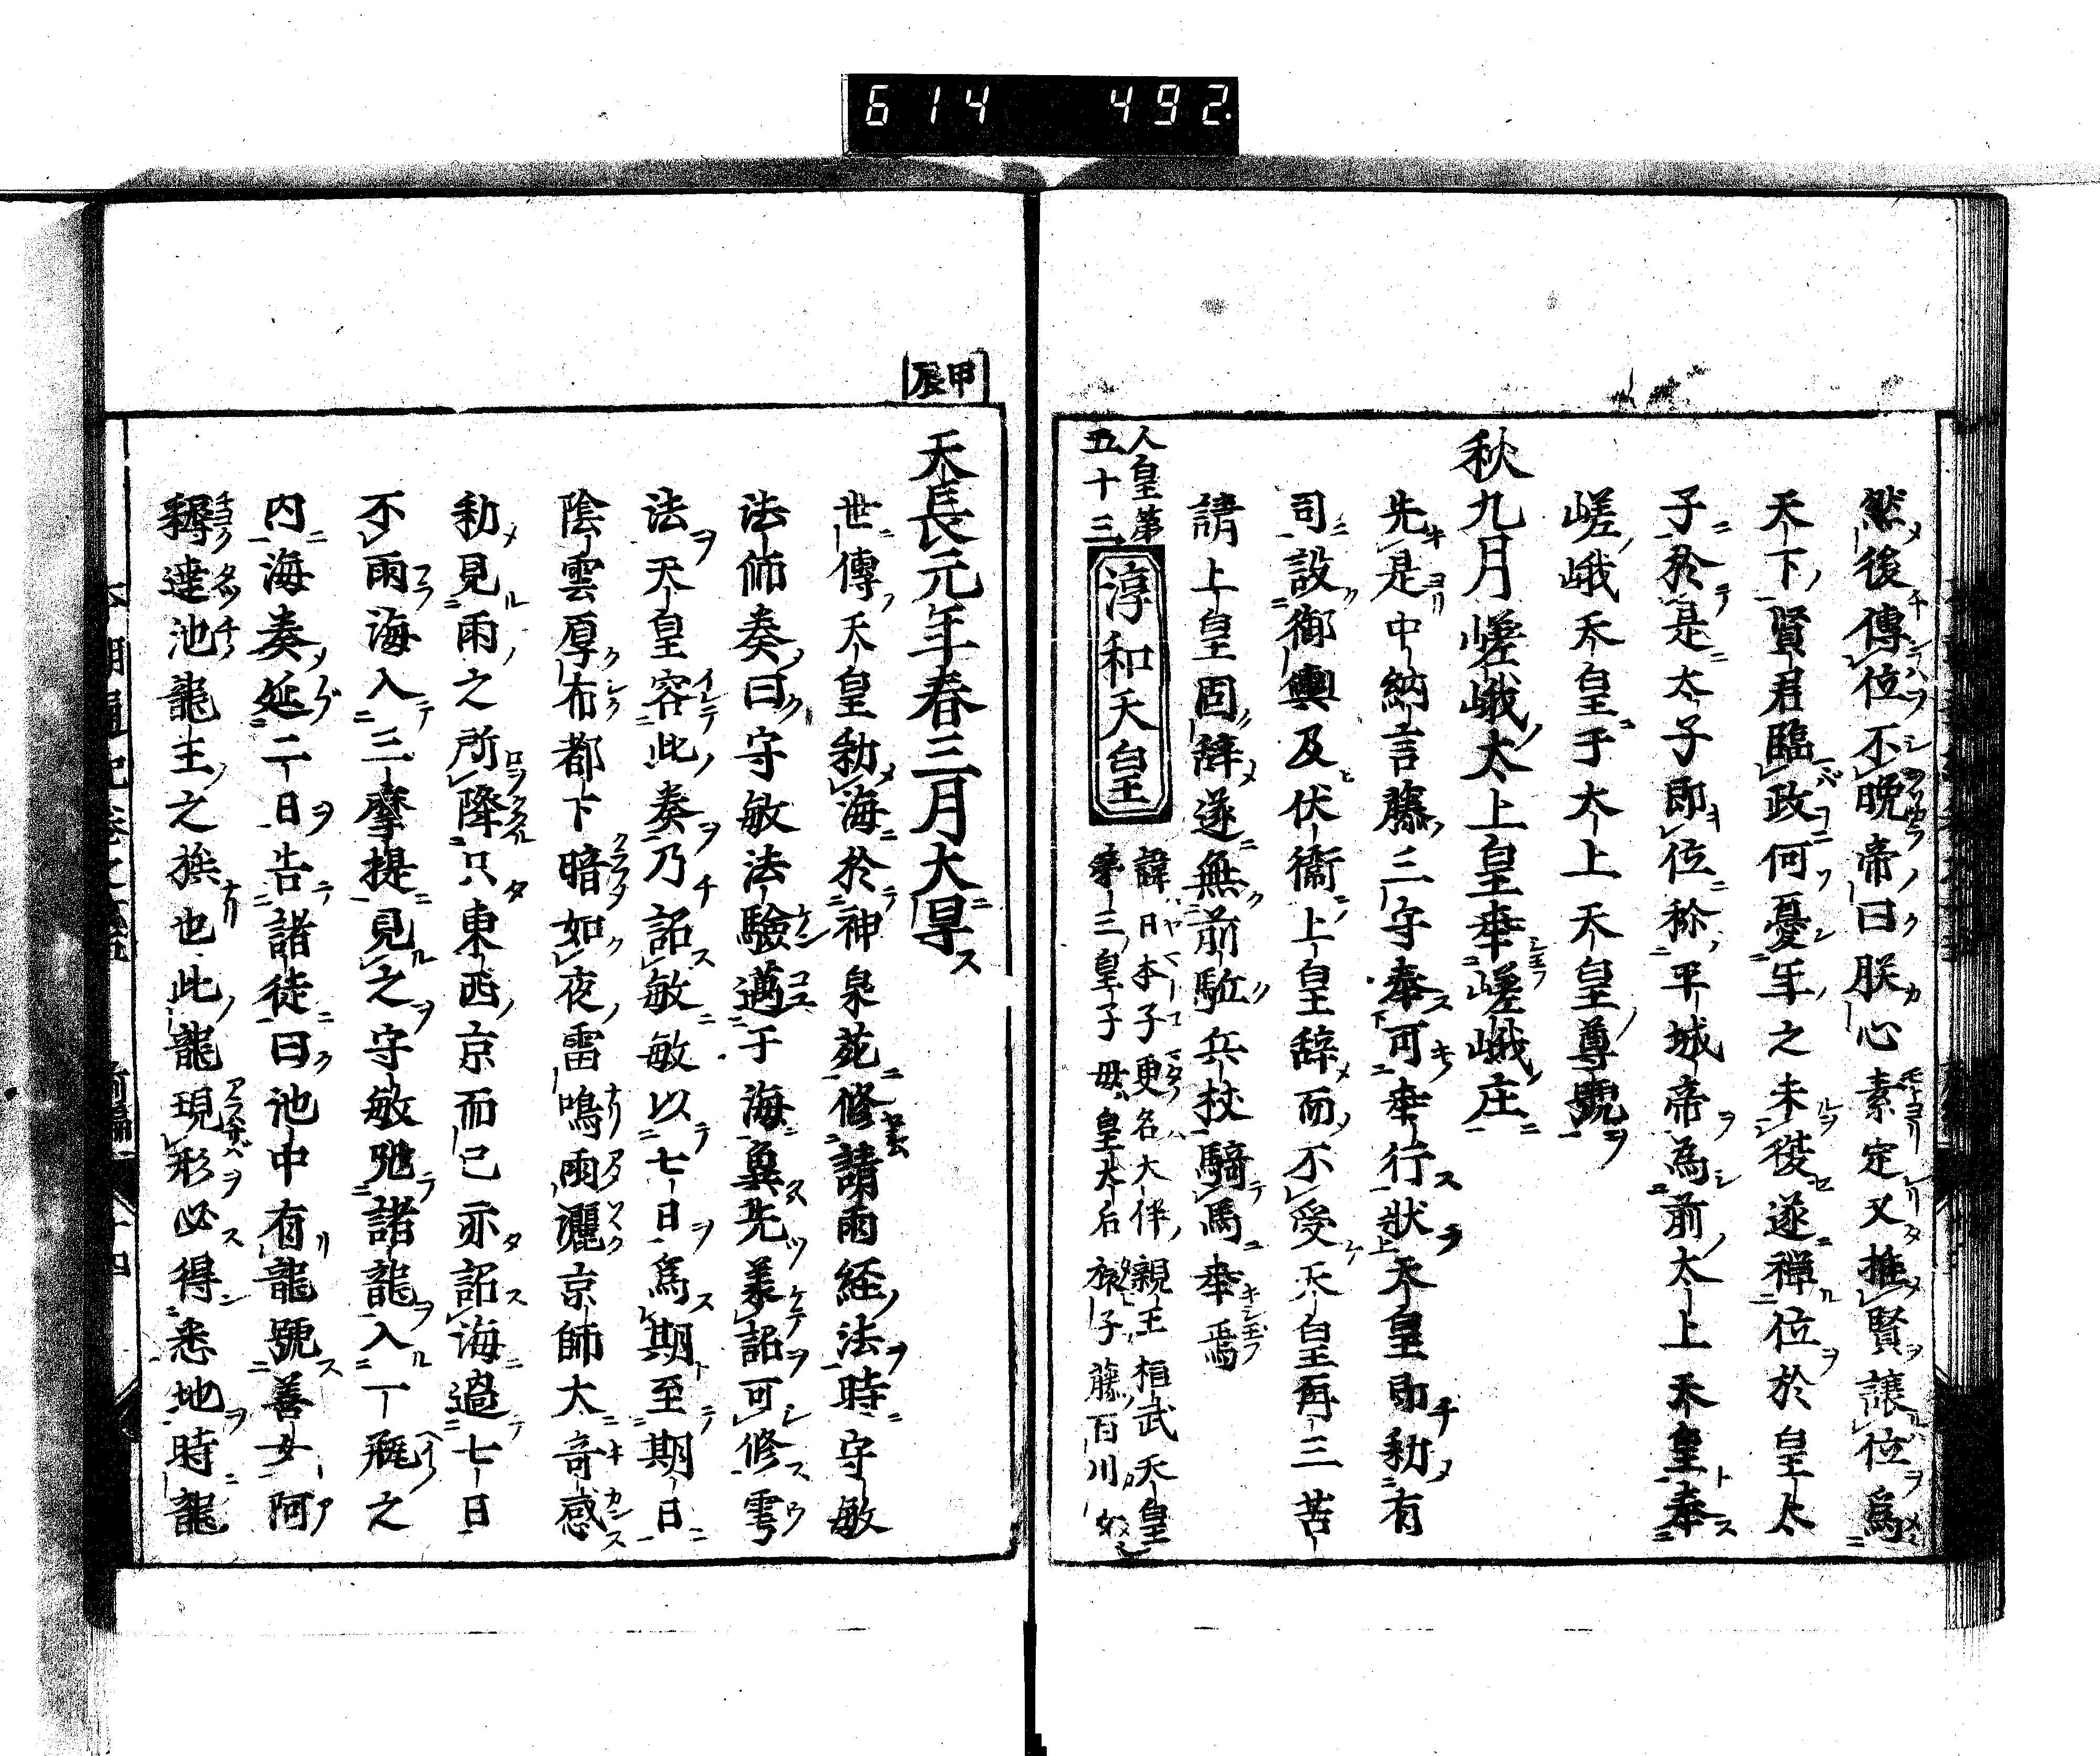 614 492.
然後傳位不晩帝曰朕心素定又推賢譲位爲
天下賢君臨政何憂年之未
遂禅位於皇太
子於是太子即位称平城帝為前太上天皇奉
嵯峨天皇于太上天皇尊號
秋九月嵯峨太上皇幸嵯峨庄
先是中納言藤三守奉可幸行狀天皇即勅有
司設御輿及伏衞上皇辞而不受天皇再三苦
請上皇固辞遂無前駈兵杖騎馬幸焉
人皇第
五十三
淳和天皇
諱日本子更名大伴親王桓武天皇
第三皇子母皇太后
子藤百川女
甲辰
天長元年春三月大旱
世傳天皇勅海於神泉苑修請雨経法時守敏
法師奏曰守敏法驗邁于海冀先羕詔可修雩
法天皇容此奏乃詔敏敏以七日爲期至期日
陰雲厚布都下暗如夜雷鳴雨灑京師大奇感
勅見雨之所降只東西京而已亦詔海過七日
不雨海入三摩提見之守敏
諸龍入一瓶之
内海奏延二日告諸徒曰池中有龍號善女阿
耨達池龍王之族也此龍現形必得悉地時龍